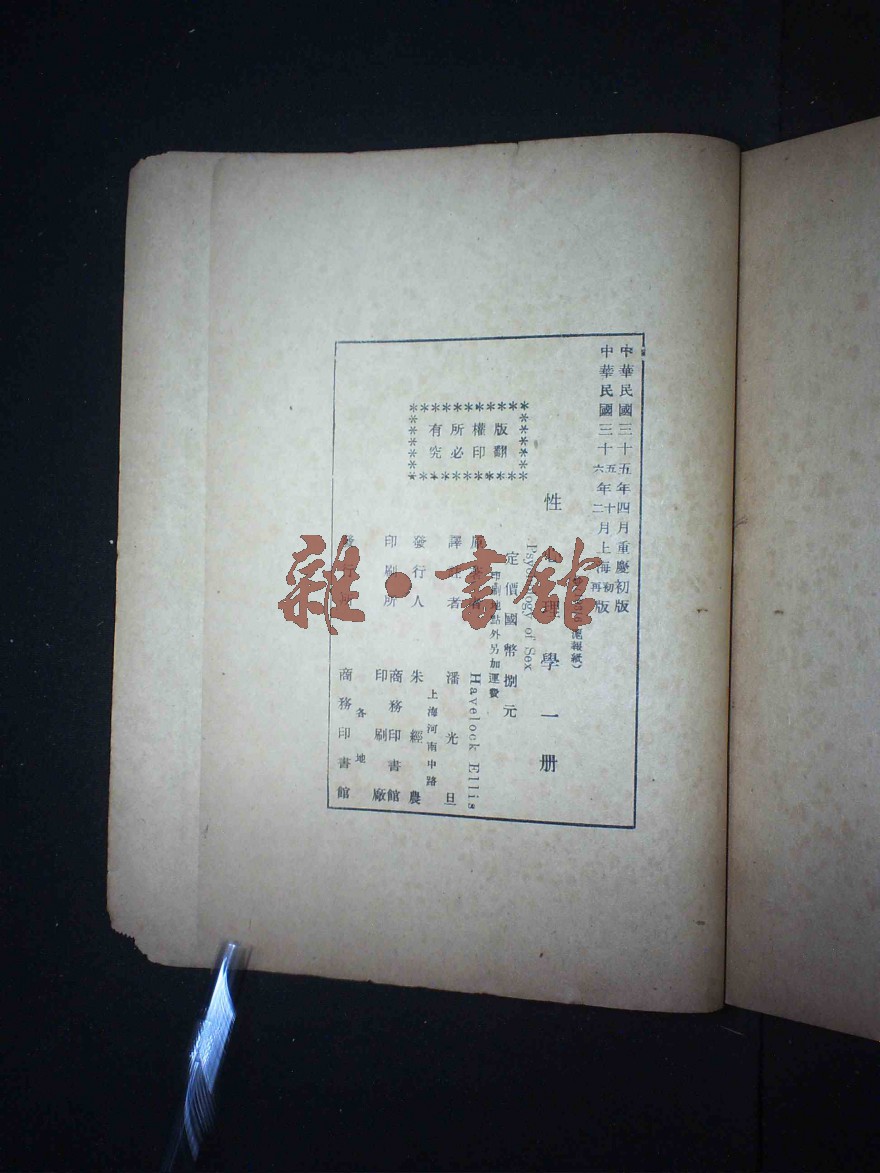 中華民國三十五年四月重慶初版
中華民國三十五六年十二月上海初再版
滬報紙)
性心理學一册
Psychology of Sex
定價國幣捌元
印刷地點外另加運費
版權所有
翻印必究
原著者 Havelock Ellis
譯註者 潘光旦
上海河南中路
發行人 朱經農
印刷所 商務印書館
印刷廠
各地
發行所 商務印書館
雜·書館